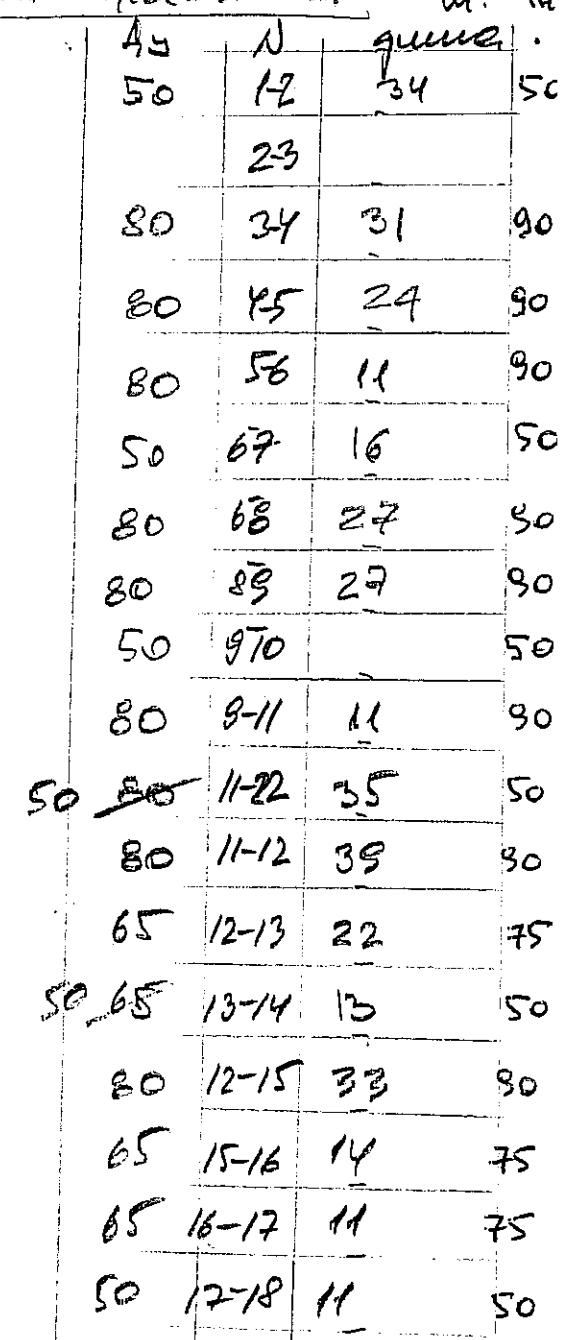 Ду N длина.
50 1-2 34 50
2-3
80 3-4 31 90
80 4-5 24 90
80 5-6 11 90
50 6-7 16 50
80 6-8 27 90
80 8-9 27 90
50 9-10 50
80 9-11 11 90
50 80 11-22 35 50
80 11-12 39 90
65 12-13 22 75
50 65 13-14 13 50
80 12-15 33 90
65 15-16 14 75
65 16-17 11 75
50 17-18 11 50